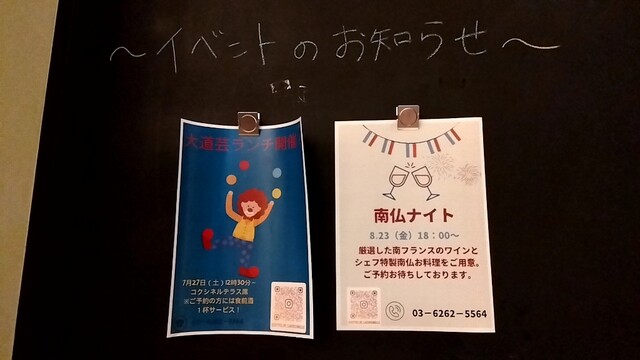 ～イベントのお知らせ～
大道芸ランチ開催
7月27日（土）12時30分~
コクシネルテラス席
※ご予約の方には食前酒
1杯サービス！
03-6262-5564
南仏ナイト
8.23（金）18：00～
厳選した南フランスのワインと
シェフ特製南仏お料理をご用意。
ご予約お待ちしております。
03-6262-5564